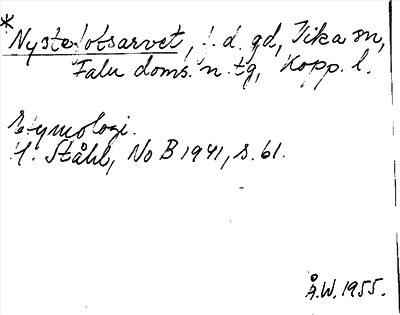 * Nystelotsarvet, f. d. gd, Vika sn,
Falu doms. n. tg, Kopp. l.
Etymologi.
H. Ståhl, NoB 1941, s. 61.
Å.W. 1955.